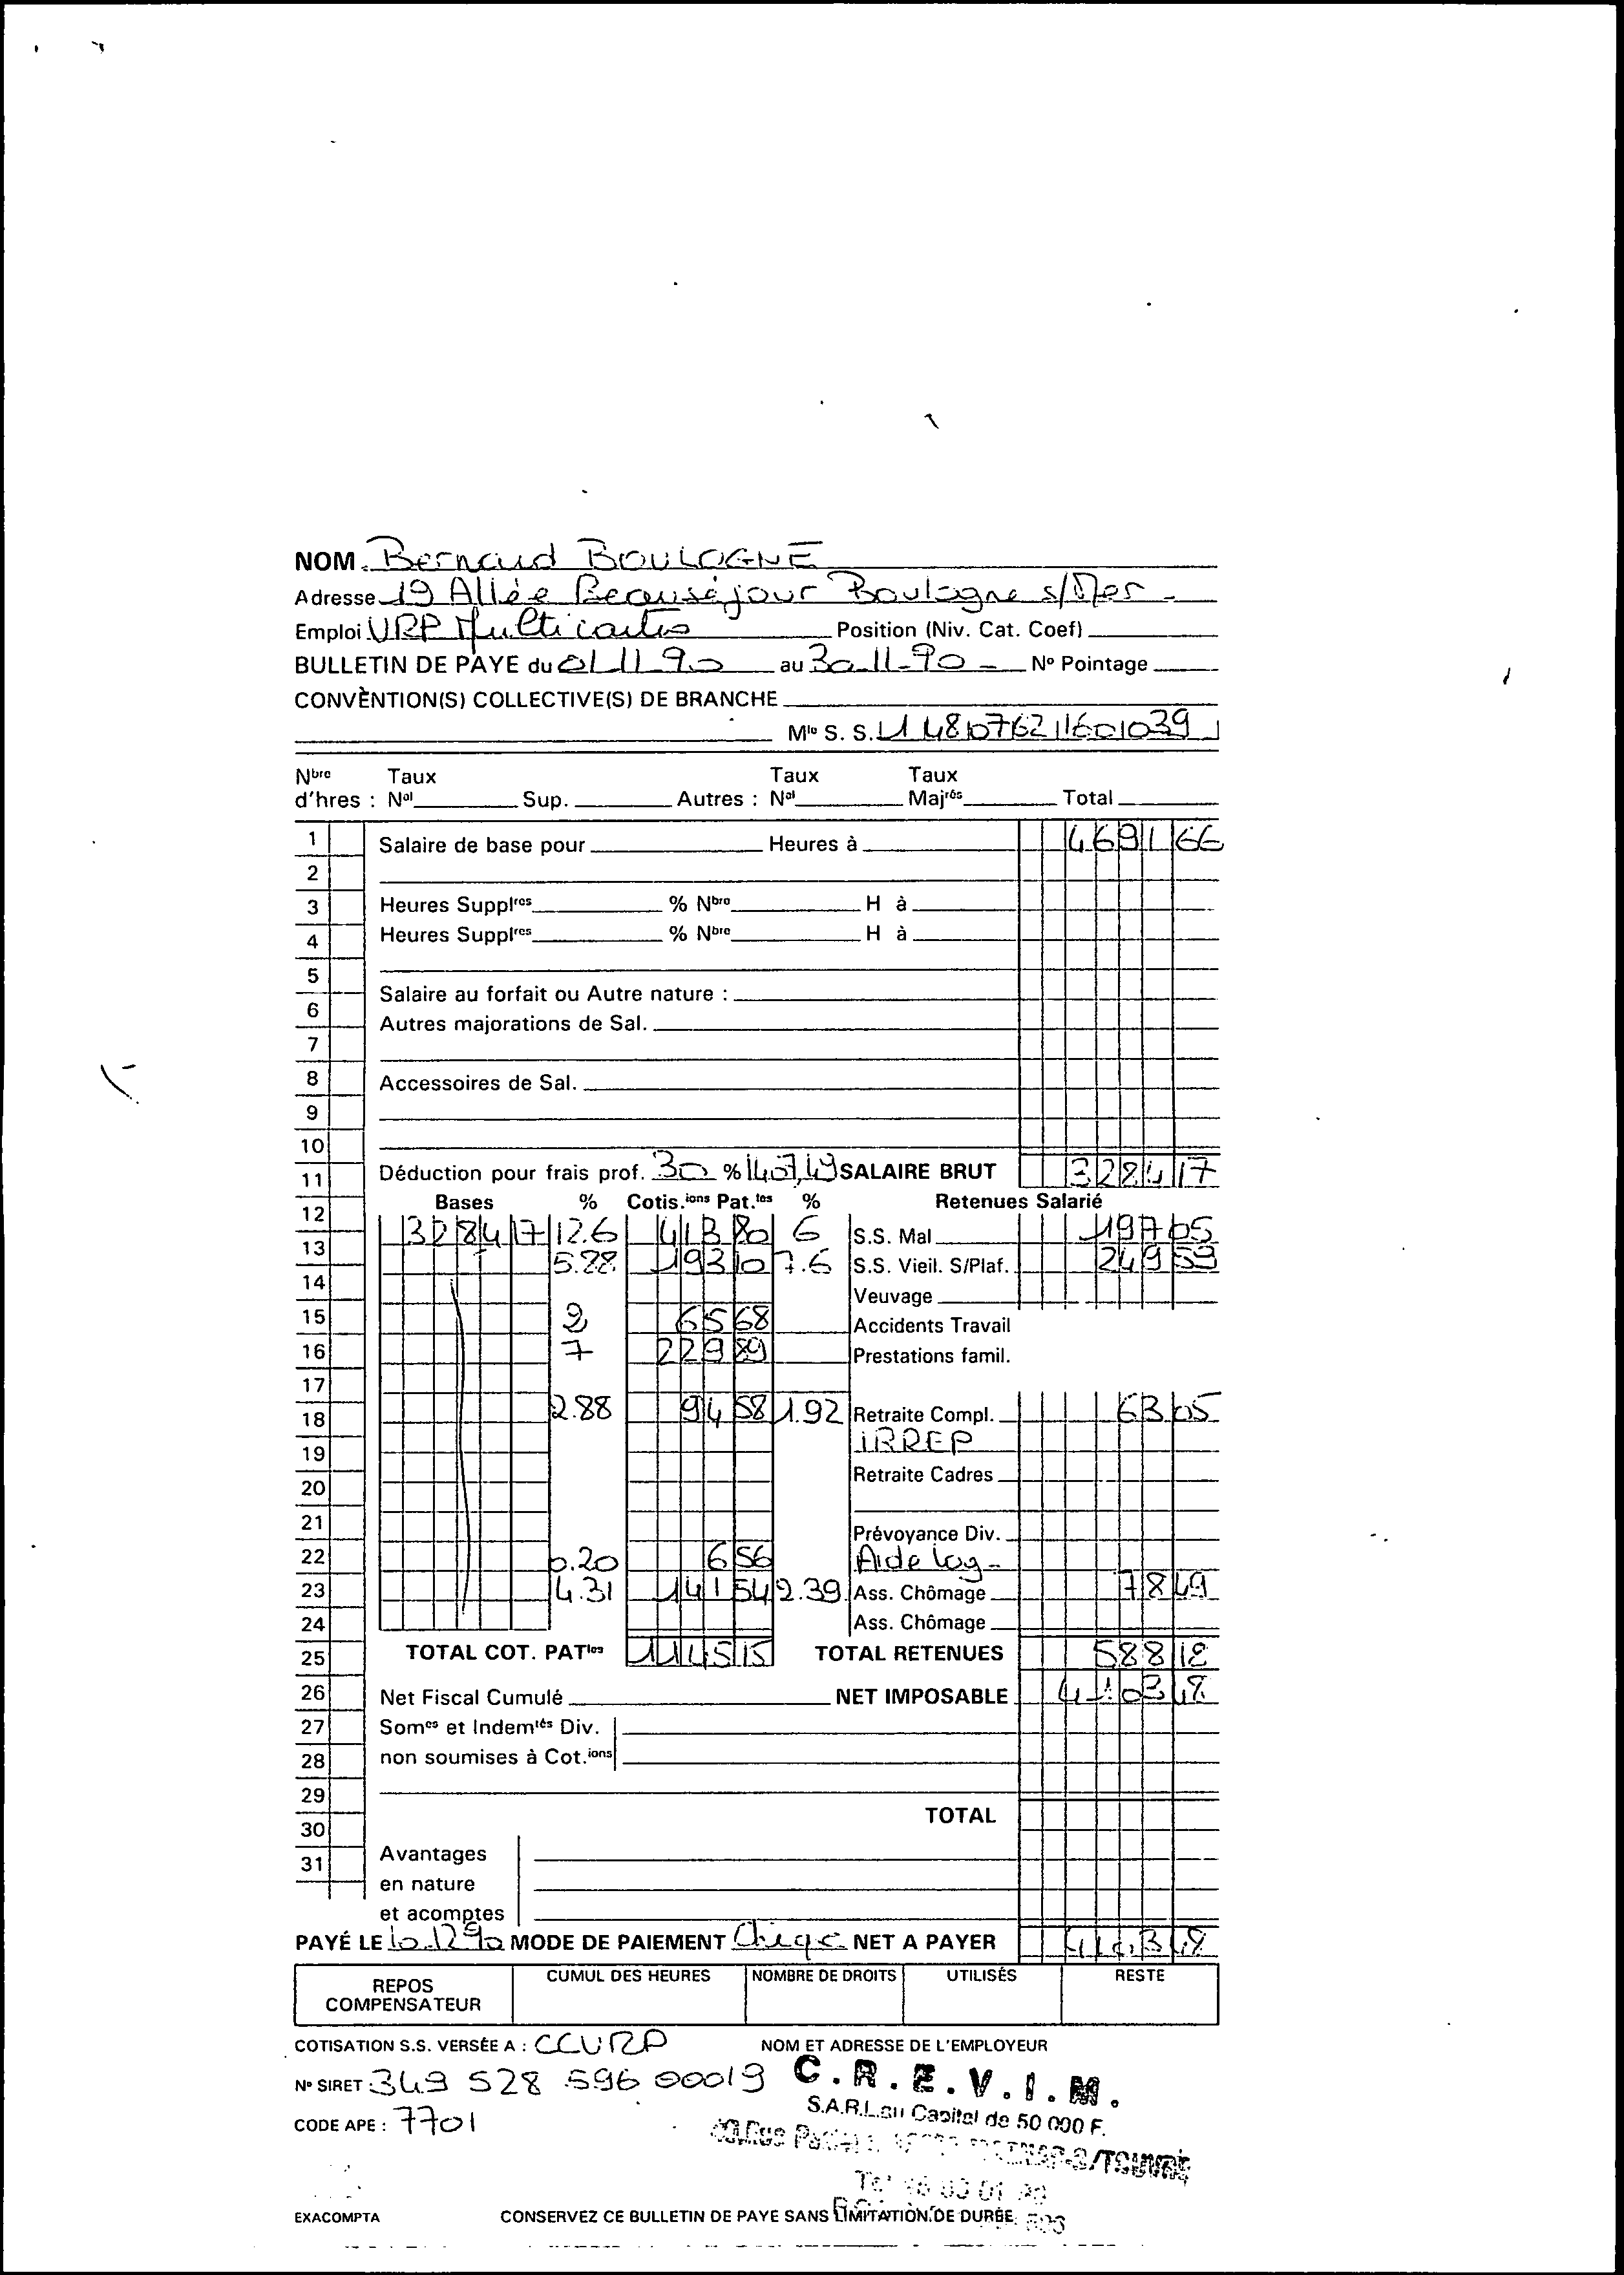 NOM. Bernard BOULOGNE
Adresse 19 Allée Beauséjour Boulogne s/Mer -
Emploi VRP Multicartes Position (Niv. Cat. Coef)
BULLETIN DE PAYE du 01 11 90 au 30-11-90 - Nº Pointage
CONVENTION(S) COLLECTIVE(S) DE BRANCHE
Mle S. S. 1 48076211601039
Nbre Taux Taux Taux
d'hres : Nal Sup. Autres : Nal Majrés Total
1 Salaire de base pour Heures à 4691 66
2
3 Heures Supplres % Nbre H à
4 Heures Supplres % Nbre H à
5
6 Salaire au forfait ou Autre nature :
Autres majorations de Sal.
7
8 Accessoires de Sal.
9
10
11 Déduction pour frais prof. 30 % 1407,49 SALAIRE BRUT 3284 17
12 Bases % Cotis.ions Pat.les % Retenues Salarié
3284 17 12.6 413 80 6 S.S. Mal 197 05
13 5.88 193 10 7.6 S.S. Vieil. S/Plaf. 249 59
14 Veuvage
15 2 65 68 Accidents Travail
16 7 229 89 Prestations famil.
17
18 2.88 94 58 1.92 Retraite Compl. 63 05
19 IRREP
20 Retraite Cadres
21
Prévoyance Div.
22 0.20 6 56 Aide log -
23 4.31 141 54 2.39 Ass. Chômage 78 49
24 Ass. Chômage
25 TOTAL COT. PATles 1145 15 TOTAL RETENUES 588 18
26 Net Fiscal Cumulé NET IMPOSABLE 4103 48
27 Somes et Indemtés Div.
28 non soumises à Cot.ions
29
30 TOTAL
31 Avantages
en nature
et acomptes
PAYÉ LE 10.12 90 MODE DE PAIEMENT Chèque NET A PAYER
REPOS COMPENSATEUR CUMUL DES HEURES NOMBRE DE DROITS UTILISÉS RESTE
COTISATION S.S. VERSÉE A : CCVRP NOM ET ADRESSE DE L'EMPLOYEUR
Nº SIRET 349 528 596 00019 C.R.E.V.I.M.
S.A.R.L. au Capital de 50 000 F.
CODE APE : 7701
S/TOUVRE
EXACOMPTA CONSERVEZ CE BULLETIN DE PAYE SANS LIMITATION DE DURÉE